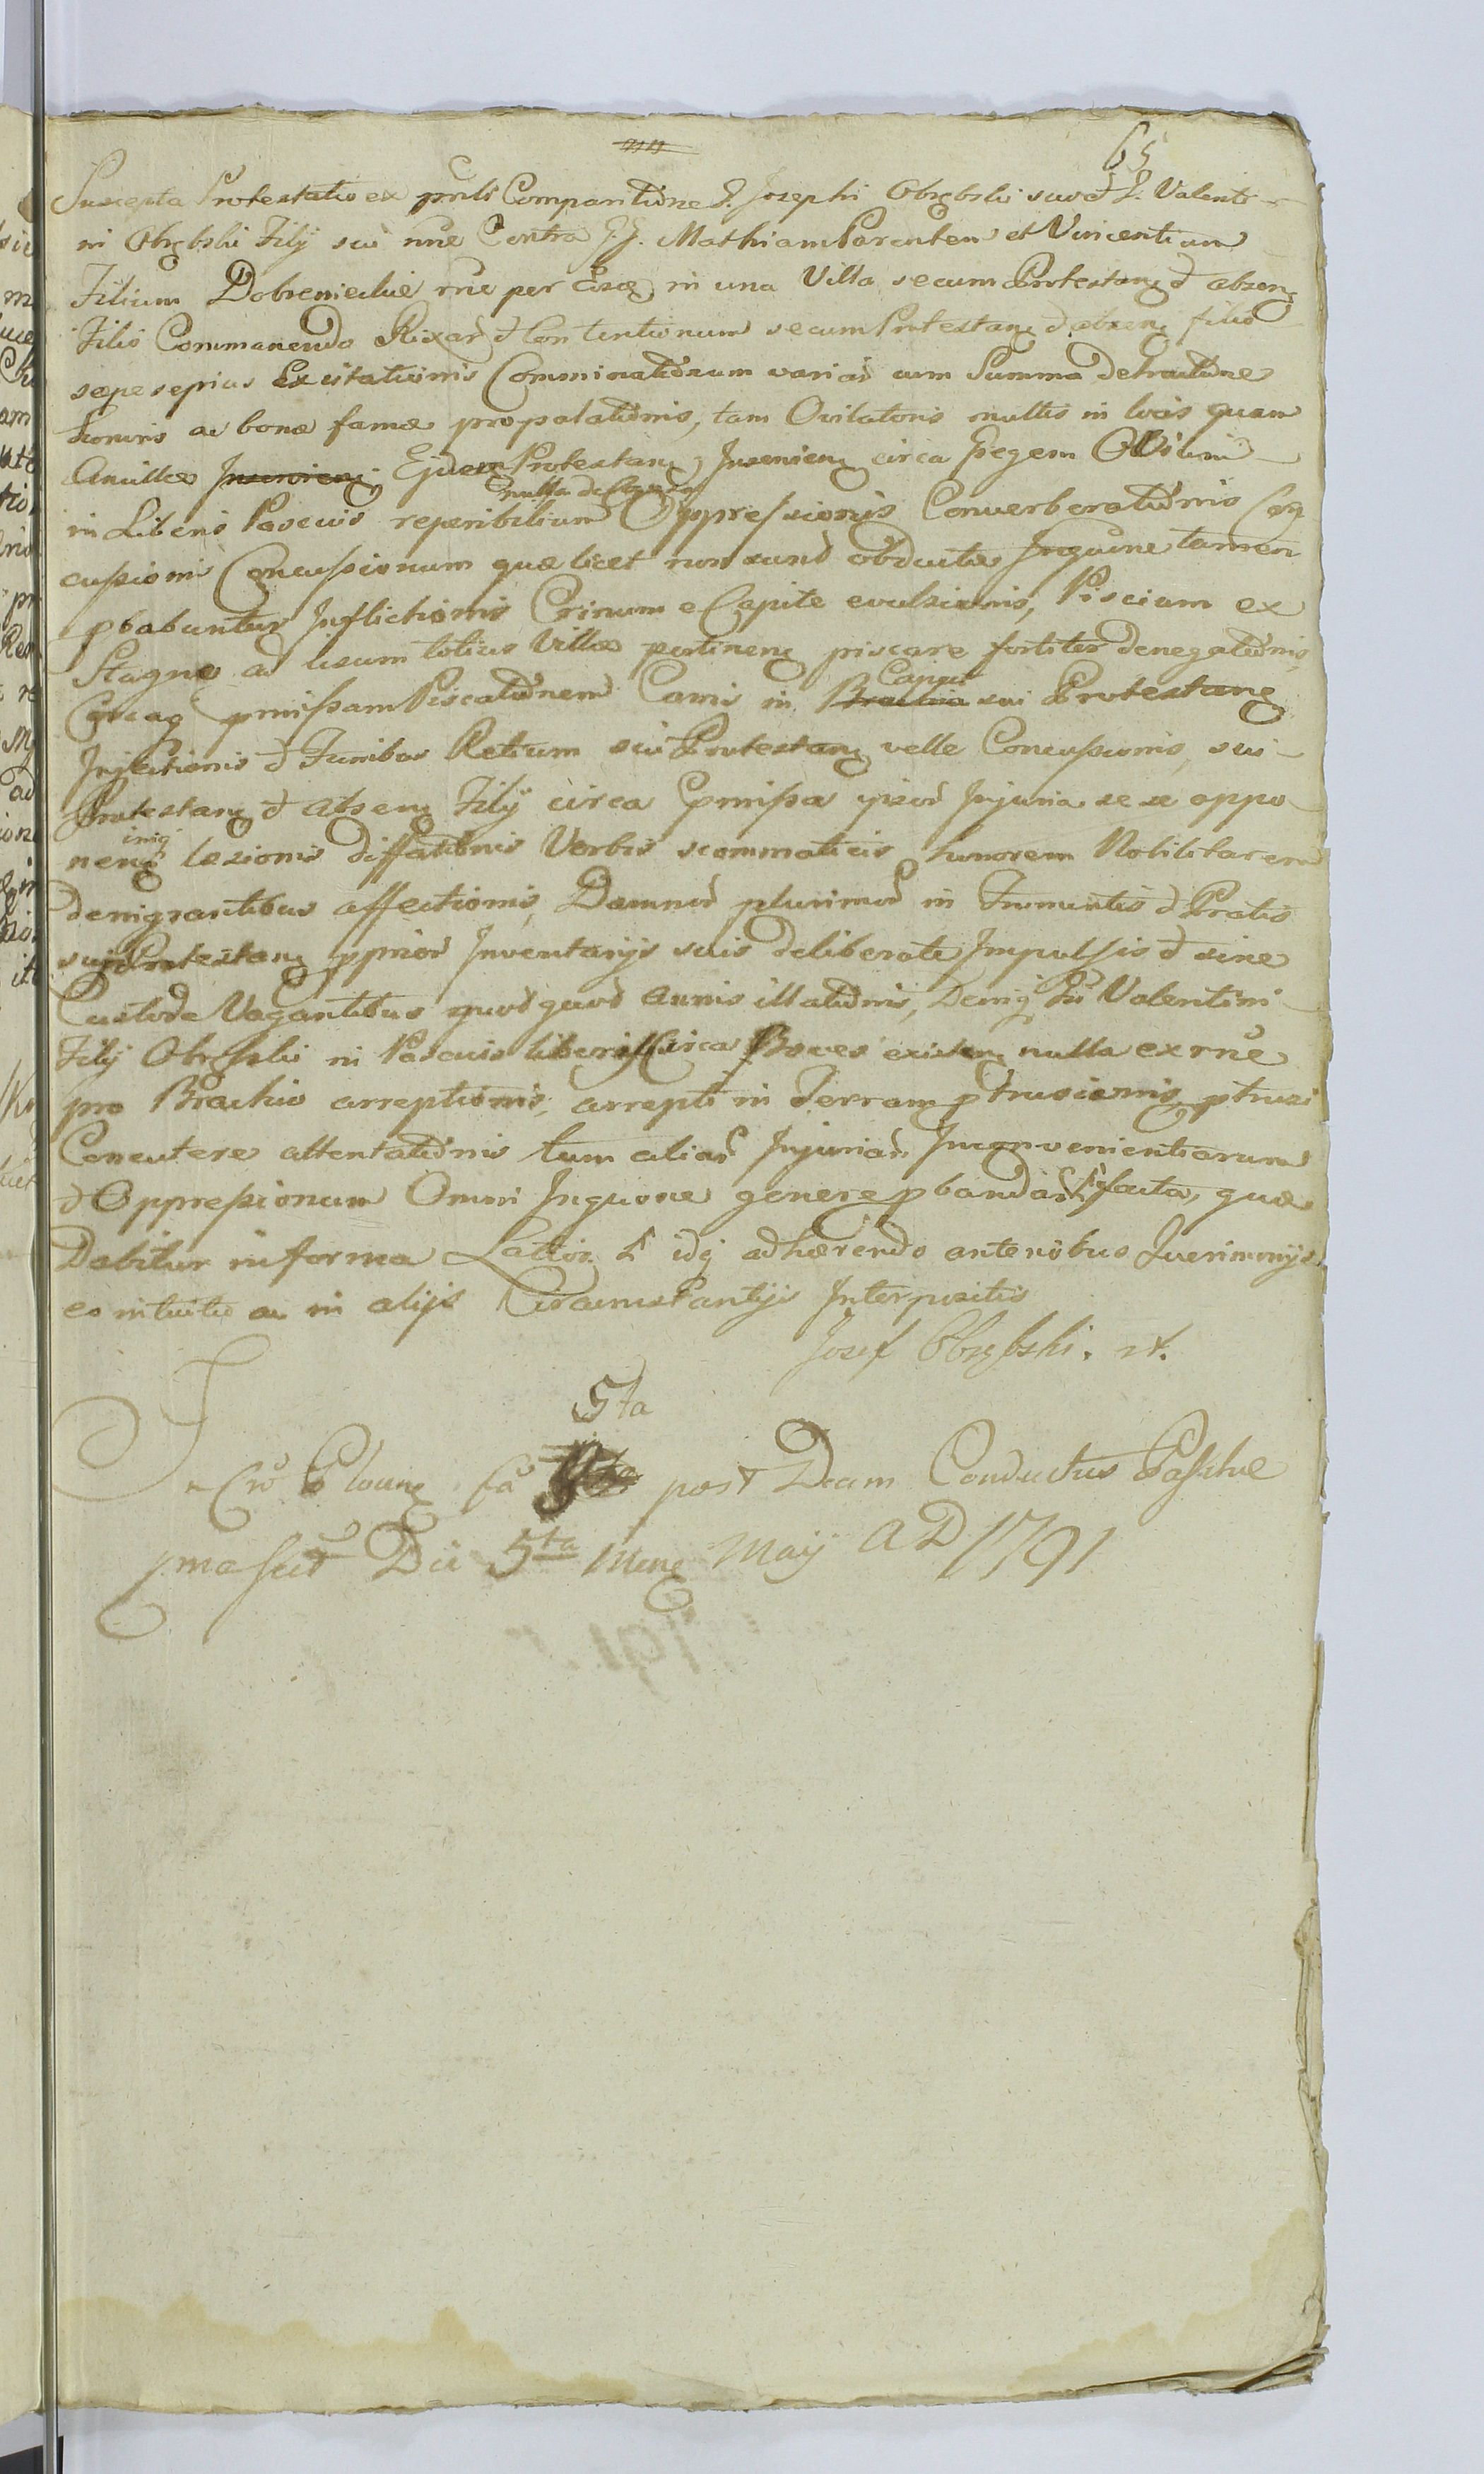 65
Suscepta Protestatio ex prnli Comparitione G. Josephi Obrębski suo et G. Valenti-
ni Obrębski Filij sui nne Contra G.G. Mathiam Parentem et Vincentium
Filium Dobrzenieckie rne per Eosq in una Villa secum Protestanq et absenq
Filio Commanendo Rixar et Contentionum secum Protestanq et absenq filio
sæpe sepius Excitationis Comminationum variar cum Summa detractione
honoris ac bonæ famæ propalationis, tam Ovilatoris multis in locis quam
Ancillæ Ejusdem Protestanq Inservienq circa Gregem Ovium
nulla de
in Liberis Pascuis reperibilium Oppressionis Converberationis Con
cussionis Concussionum quæ licet non sund obductæ Inquōne tamen
pbabuntur Inflictionis Crinum e Capite evulsionis, Piscium ex
Stagno ad usum totius Villæ pertinenq piscare fortiter denegationis,
Caput
Circaq pmissam Piscationem Canis in Brachia sui Protestanq
Injectionis et Funibus Retium sui Protestanq velle Concussionis, sui
Protestanq et Absenq Filij circa pmissa ipsor Injuria se se oppo
nenq læsionis diffationis Verbis scommaticis honorem Nobilitarem
denigrantibus affectionis, Damnor plurimor in Frumentis et Pratis
sui Protestanq pprior Inventarijs suis deliberate Impulsis et sine
Custode Vagantibus quod quod annis illationis, Deniq Gsi Valentini
Filij Obrębski in Pascuis liberis Circa Boves existenq nulla ex rne
pro Brachio arreptionis, arrepti in Terram ptrusionis, ptrusi
Concutere attentationis tum aliar Injuriar Inconvenientiarum
et Oppressionum Omni Inquone genere pbandar facta, quæ
Dabitur in forma Lattiori et idq adhærendo anterioribus Querimonijs
eo intuitu ac in alijs Circumstantijs Interpositis
Josef Obrębski. mp.
5ta
In Cro Plocenq fa post Dcam Conductus Paschæ
pma scit Die 5ta Menq Maij AD 1791